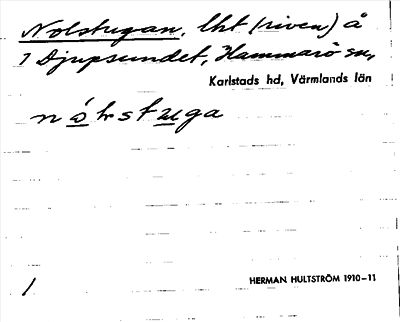 Nolstugan, lht (riven) å
1 Djupsundet, Hammarö sn,
Karlstads hd, Värmlands län
nó̠lstu̠ga
HERMAN HULTSTRÖM 1910–11
1